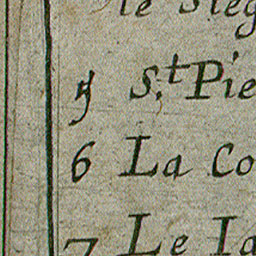 le Sieg
5 S.t Pie
6 La Co
7 Le Ia